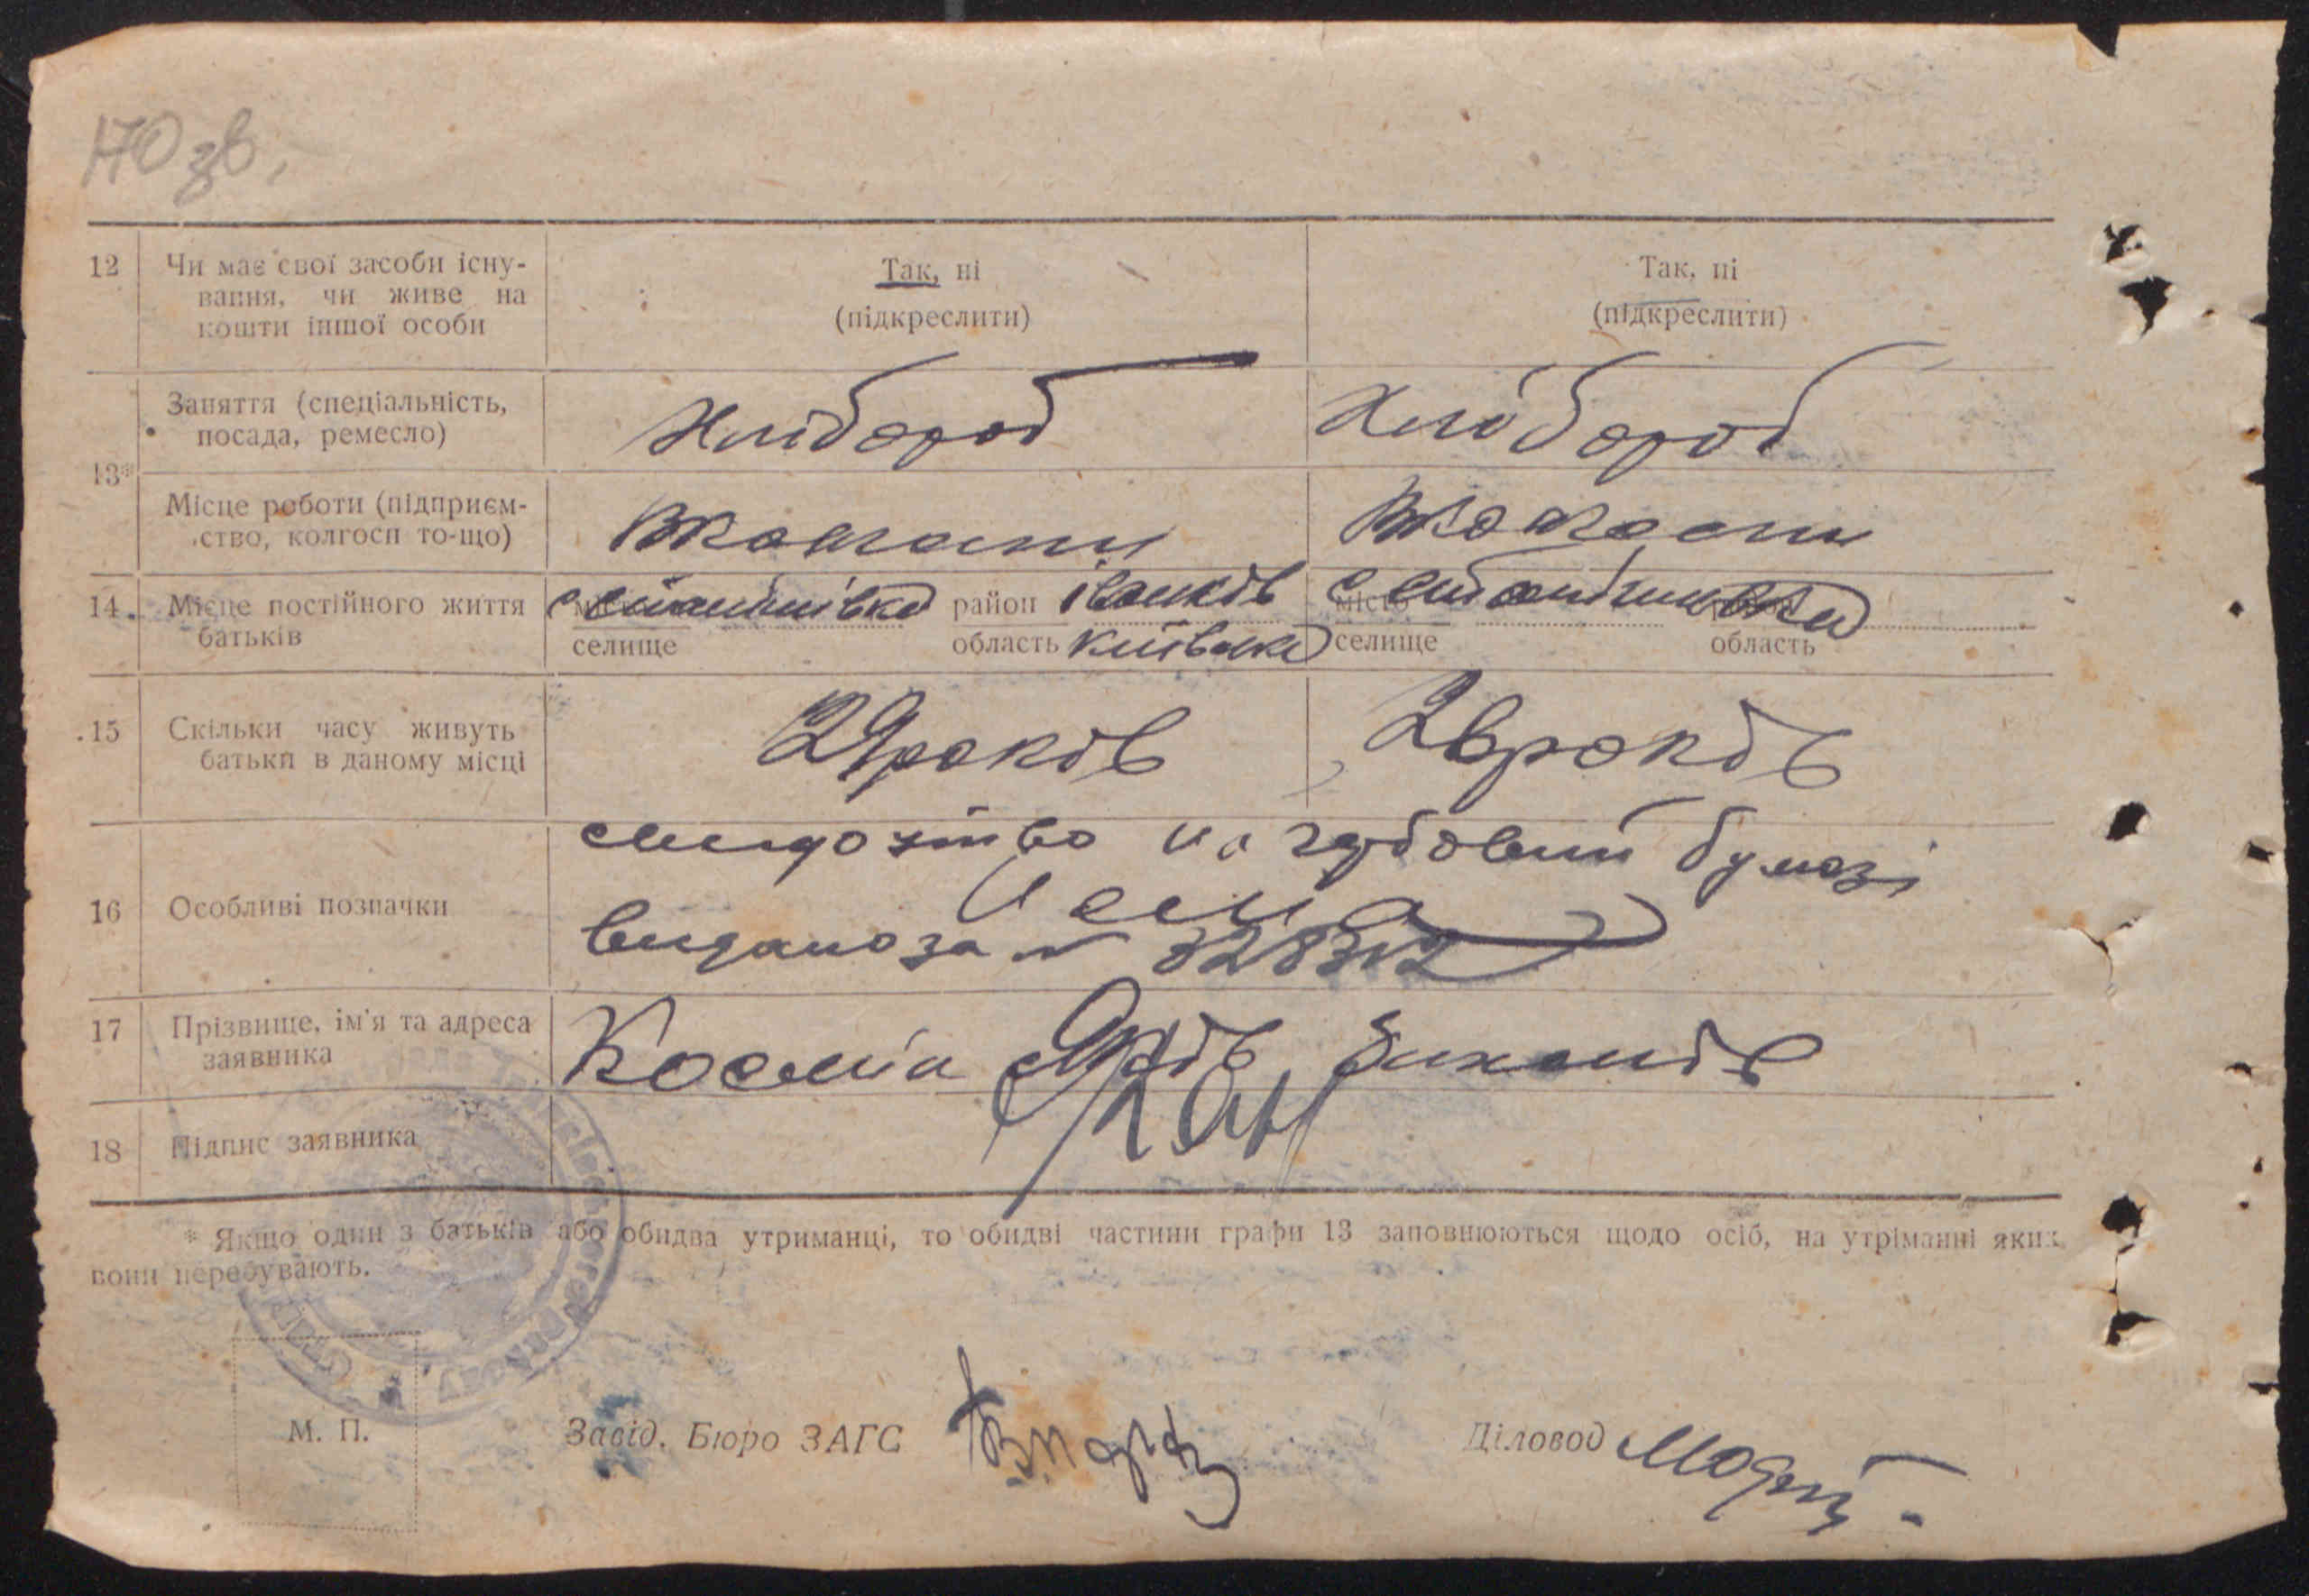 170 зв.
12 Чи має свої засоби існу-
вання, чи живе на
кошти іншої особи
Так, ні
(підкреслити)
Так, ні
(підкреслити)
13*
Заняття (спеціальність,
посада, ремесло)
Хлібороб
Хлібороб
Місце роботи (підприєм-
ство, колгосп то-що)
В колгоспи
В колгоспи
14. Місце постійного життя
батьків
місто
селище
район Іванків
область Київська
місто
селище
область
15 Скільки часу живуть
батьки в даному місці
29 років
26 років
16 Особливі позначки
свидоцтво на гербовий бумазі
видано за № 328312
17 Прізвище, ім'я та адреса
заявника
18 Підпис заявника
* Якщо один з батьків або обидва утриманці, то обидві частини графи 13 заповнюються щодо осіб, на утріманні яких
вони перебувають.
М. П.
Завід. Бюро ЗАГС
Діловод